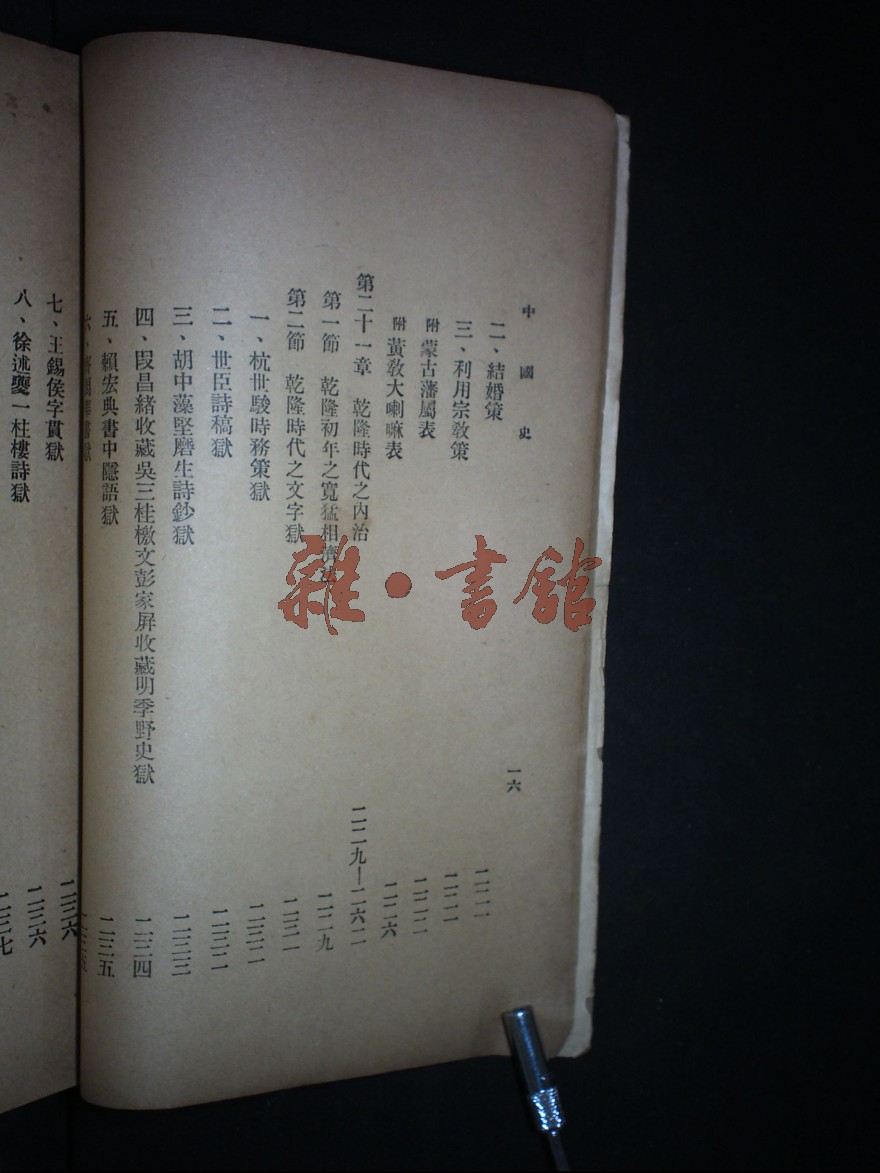 中國史
一六
二、結婚策 二二一
三、利用宗教策 二二一
附 蒙古藩屬表 二二二
附 黃教大喇嘛表 二二六
第二十一章 乾隆時代之內治 二二九—二六二
第一節 乾隆初年之寬猛相濟法 二二九
第二節 乾隆時代之文字獄 二三一
一、杭世駿時務策獄 二三二
二、世臣詩稿獄 二三二
三、胡中藻堅磨生詩鈔獄 二三三
四、段昌緒收藏吳三桂檄文彭家屏收藏明季野史獄 二三四
五、賴宏典書中隱語獄 二三五
六、
七、王錫侯字貫獄 二三六
八、徐述夔一柱樓詩獄 二三六
二三七
雜·書館